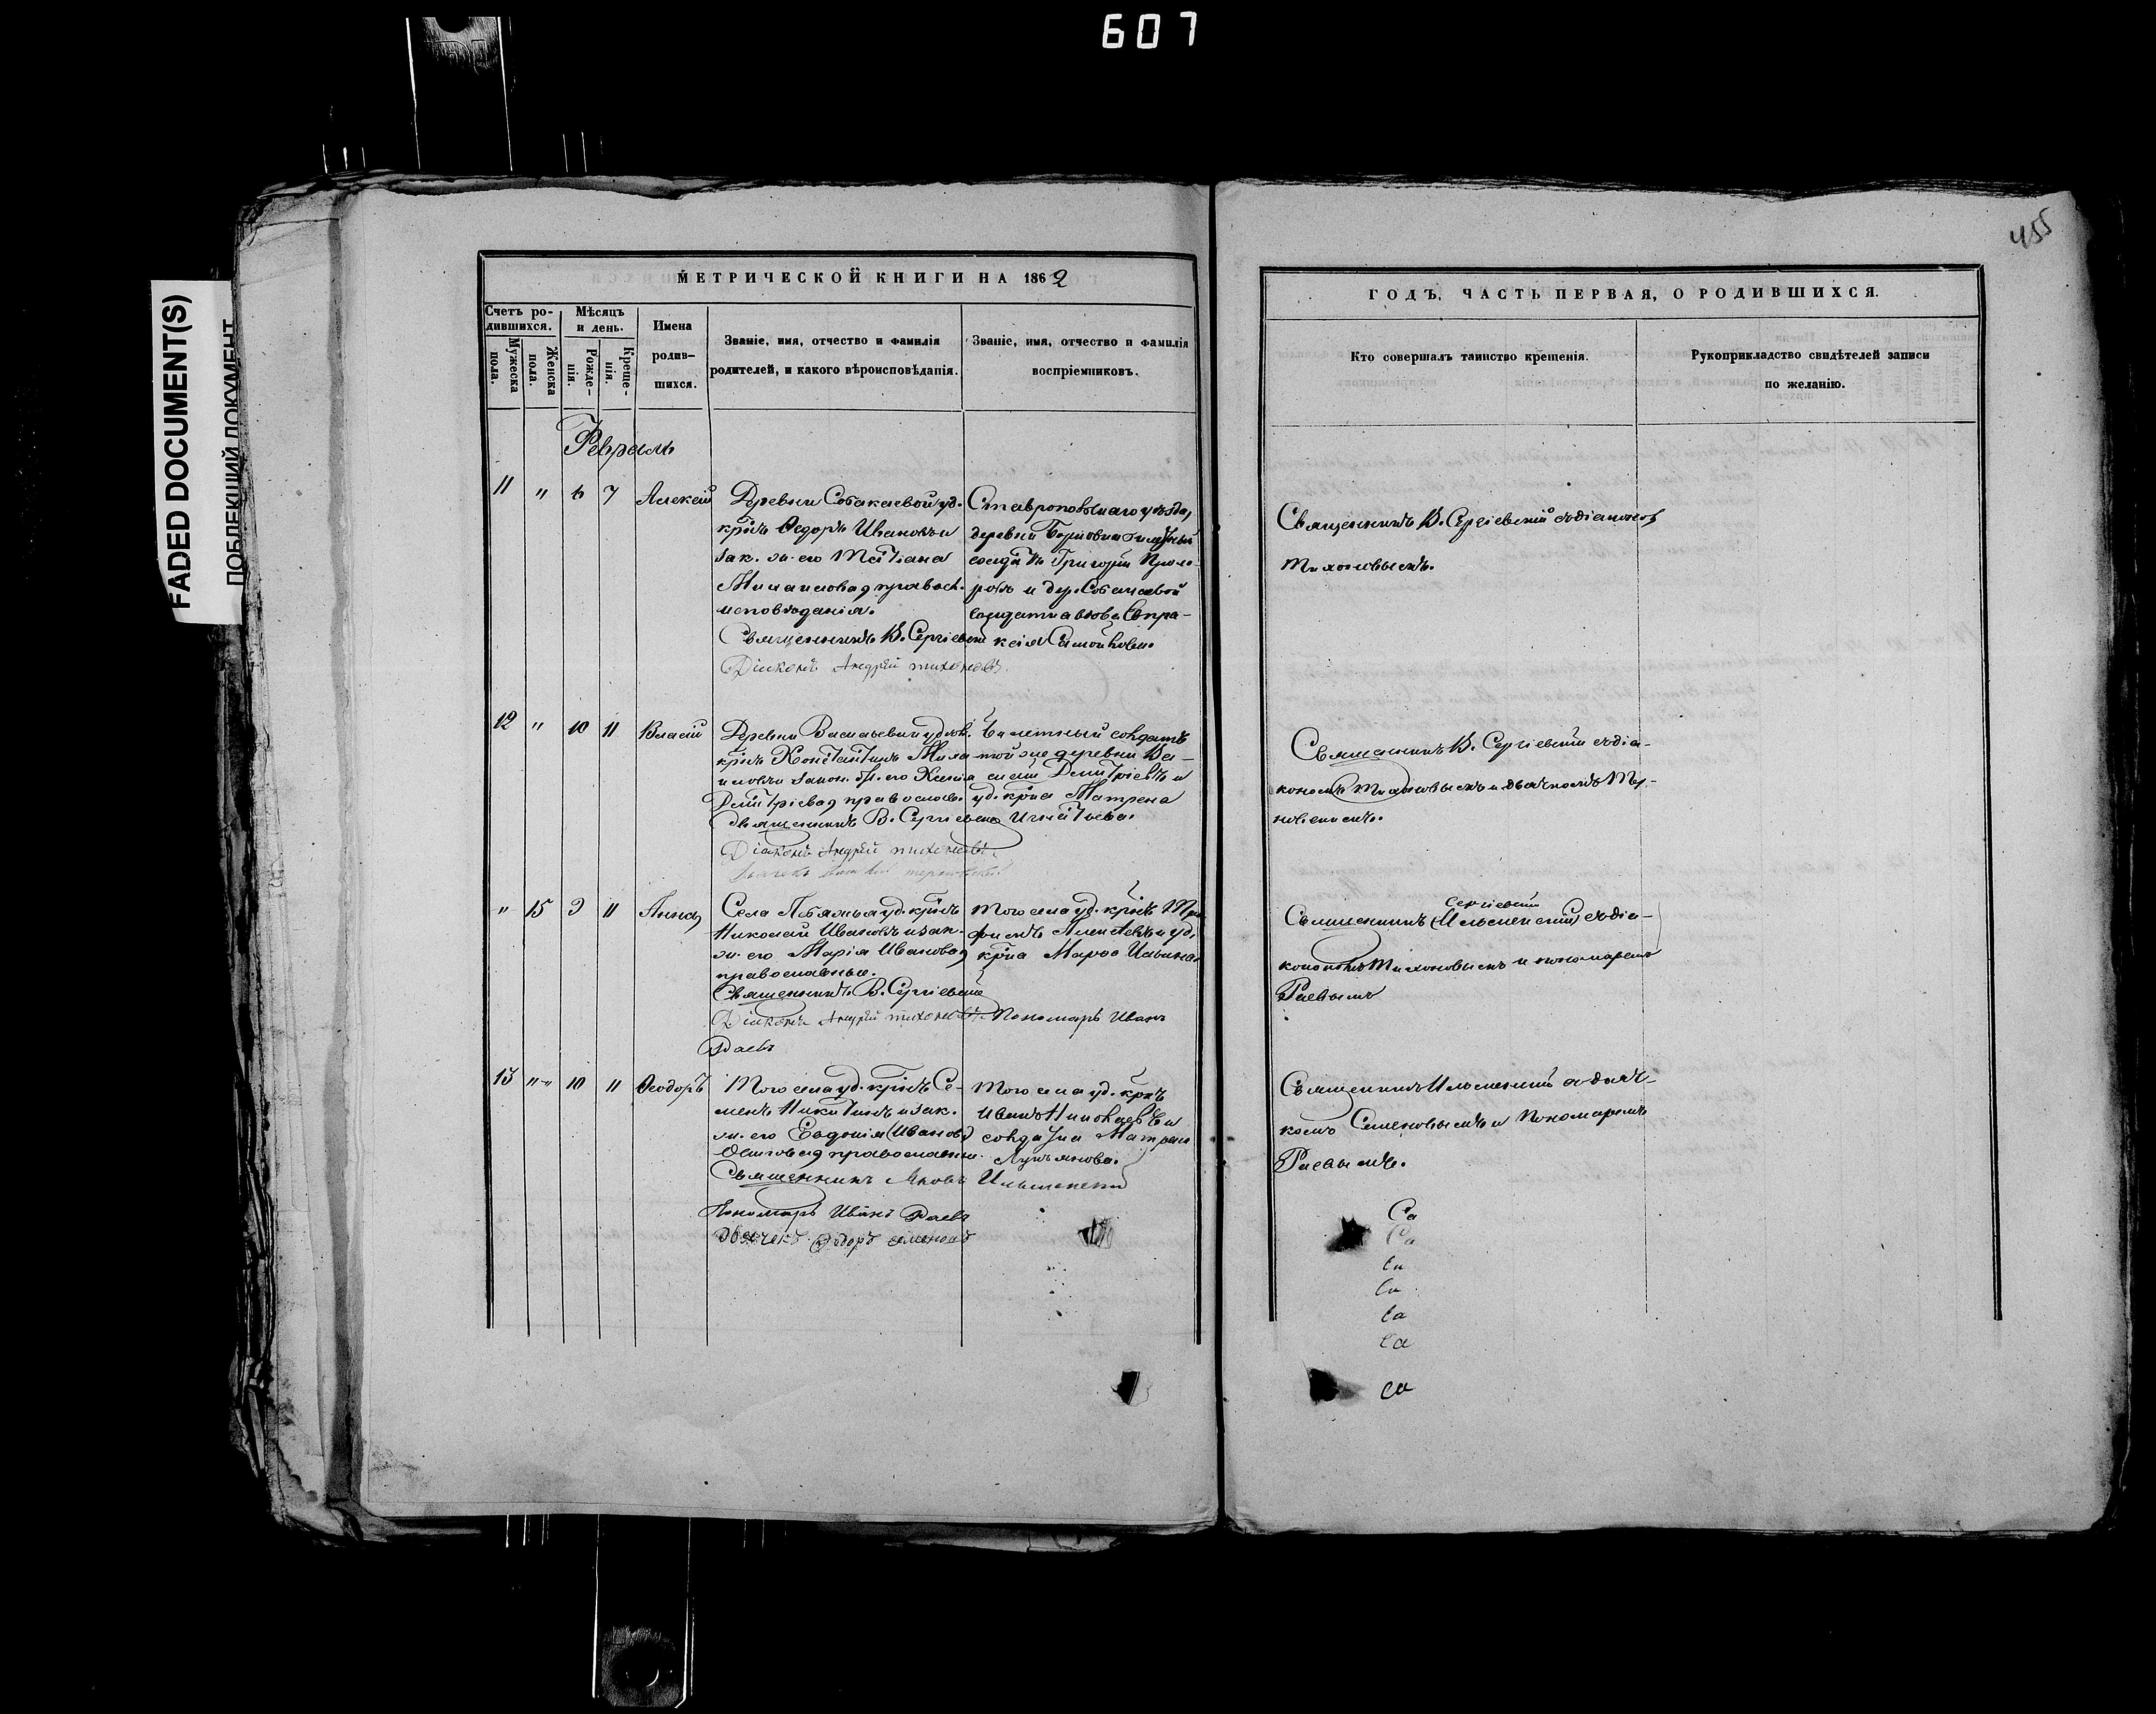 607
FADED DOCUMENT(S)
455
МЕТРИЧЕСКОЙ КНИГИ НА 1862
Счетъ ро-
дившихся.
Мужеска
пола.
Женска
пола.
Мѣсяцъ
и день.
Рожде-
нія.
Креще-
нія.
Имена
родив-
шихся.
Званіе, имя, отчество и фамилія
родителей, и какого вѣроисповѣданія.
Званіе, имя, отчество и фамилія
воспріемниковъ.
Февраль
11 " 6 7 Алексій
Деревни Собакаевой уд.
крнъ Ѳедоръ Ивановъ и
зак. ж. его Татіана
православ.
исповѣданія.
Священникъ В. Сергіевскій
Діаконъ Андрей Тихоновъ.
Ставропольскаго уѣзда,
деревни
солдатъ Григорій
и дер. Собакаевой
солдатка вдова Евпра-
ксія Самойлова.
12 " 10 11 Власій
Деревни Васильевки удѣл.
крнъ Константинъ
закон. ж. его Ксенія
Димитріева, православ.
Священникъ В. Сергіевскій
Діаконъ Андрей Тихоновъ.
Билетный солдатъ
той же деревни Ва-
силій Димитріевъ и
уд. крка Матрена
Игнатьева.
" 15 9 11 Анна
Села уд. крнъ
Николай Ивановъ и зак.
ж. его Марія Иванова,
православные.
Священникъ В. Сергіевскій
Діаконъ Андрей Тихоновъ. Пономарь Иванъ
Раевъ
Того села уд. крнъ Тро-
фимъ Алексѣевъ и уд.
крка Марѳа Ильина.
13 " 10 11 Ѳеодоръ
Того села уд. крнъ Се-
менъ Никитинъ и зак.
ж. его Евдокія (Иванова)
православные.
Священникъ Яковъ Ильменскій
Пономарь Иванъ Раевъ
Дьячекъ Ѳедоръ Семеновъ
Того села уд. крнъ
Иванъ Николаевъ и
солдатка Матрена
Лукьянова.
ГОДЪ, ЧАСТЬ ПЕРВАЯ, О РОДИВШИХСЯ.
Кто совершалъ таинство крещенія.
Рукоприкладство свидѣтелей записи
по желанію.
Священникъ В. Сергіевскій съ діакономъ
Тихоновымъ.
Священникъ В. Сергіевскій съ діа-
кономъ Тихоновымъ и дьячкомъ Тер-
новскимъ.
Сергіевскій
Священникъ (Ильменскій) съ діа-
кономъ Тихоновымъ и пономаремъ
Раевымъ
Священникъ Ильменскій съ дьяч-
комъ Семеновымъ и Пономаремъ
Раевымъ.
Са
Са
Са
Са
Са
Са
Са